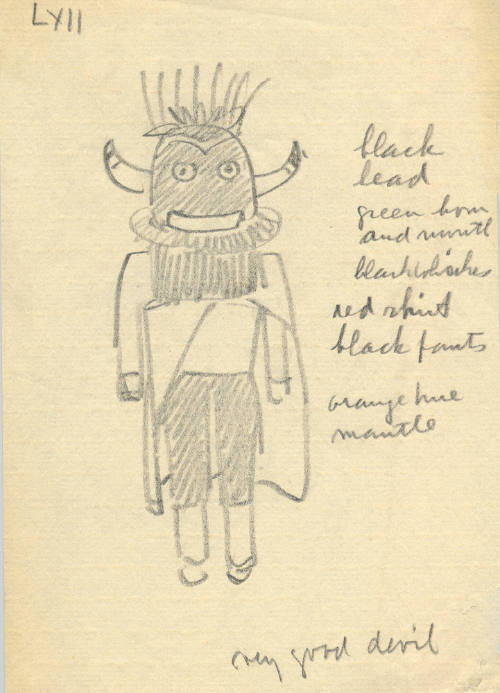 LXII
black
head
green horn
and mouth
black whiskers
red shirt
black pants
orange hue
mantle
very good devil